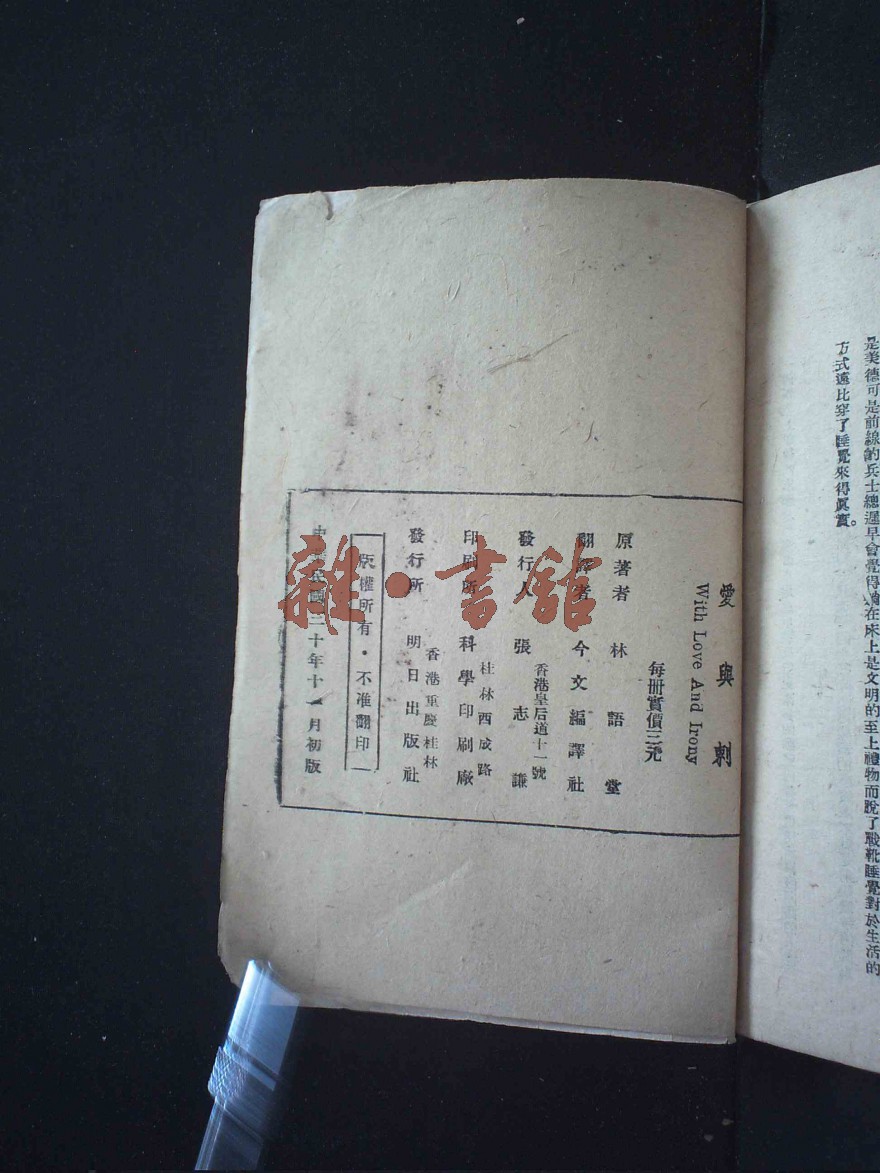 是美德可是前線的兵士總遲早會覺得躺在床上是文明的至上禮物而脫了戰靴睡覺對於生活的
方式遠比穿了睡覺來得眞實。
愛與刺
With Love And Irony
每冊實價三元
原著者 林語堂
翻譯者 今文編譯社
發行人 張志謙
香港皇后道十一號
印刷所 科學印刷廠
桂林西成路
發行所 明日出版社
香港重慶桂林
版權所有・不准翻印
中華民國三十年十一月初版
雜・書館